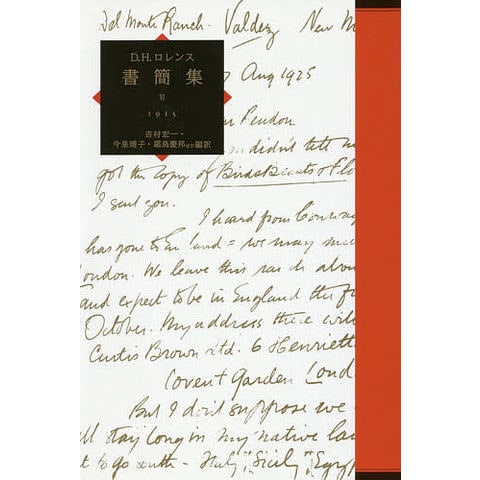 Del Monte Ranch. Valdez New M
D.H.ロレンス
書簡集
Ⅵ
1915
吉村宏一・
今泉晴子・霜鳥慶邦ほか編訳
7 Aug 1925
Pendon
didn't tell m
got the copy of Birds Beasts & Flo
I sent you.
I heard from Conway
has gone to England = we may
London. We leave this ranch abou
and expect to be in England the fi
October. My address there will
Curtis Brown Ltd. 6 Henriett
Covent Garden Lond
But I don't suppose we
ll stay long in my native lan
t to go south – Italy or Sicily or Egyp